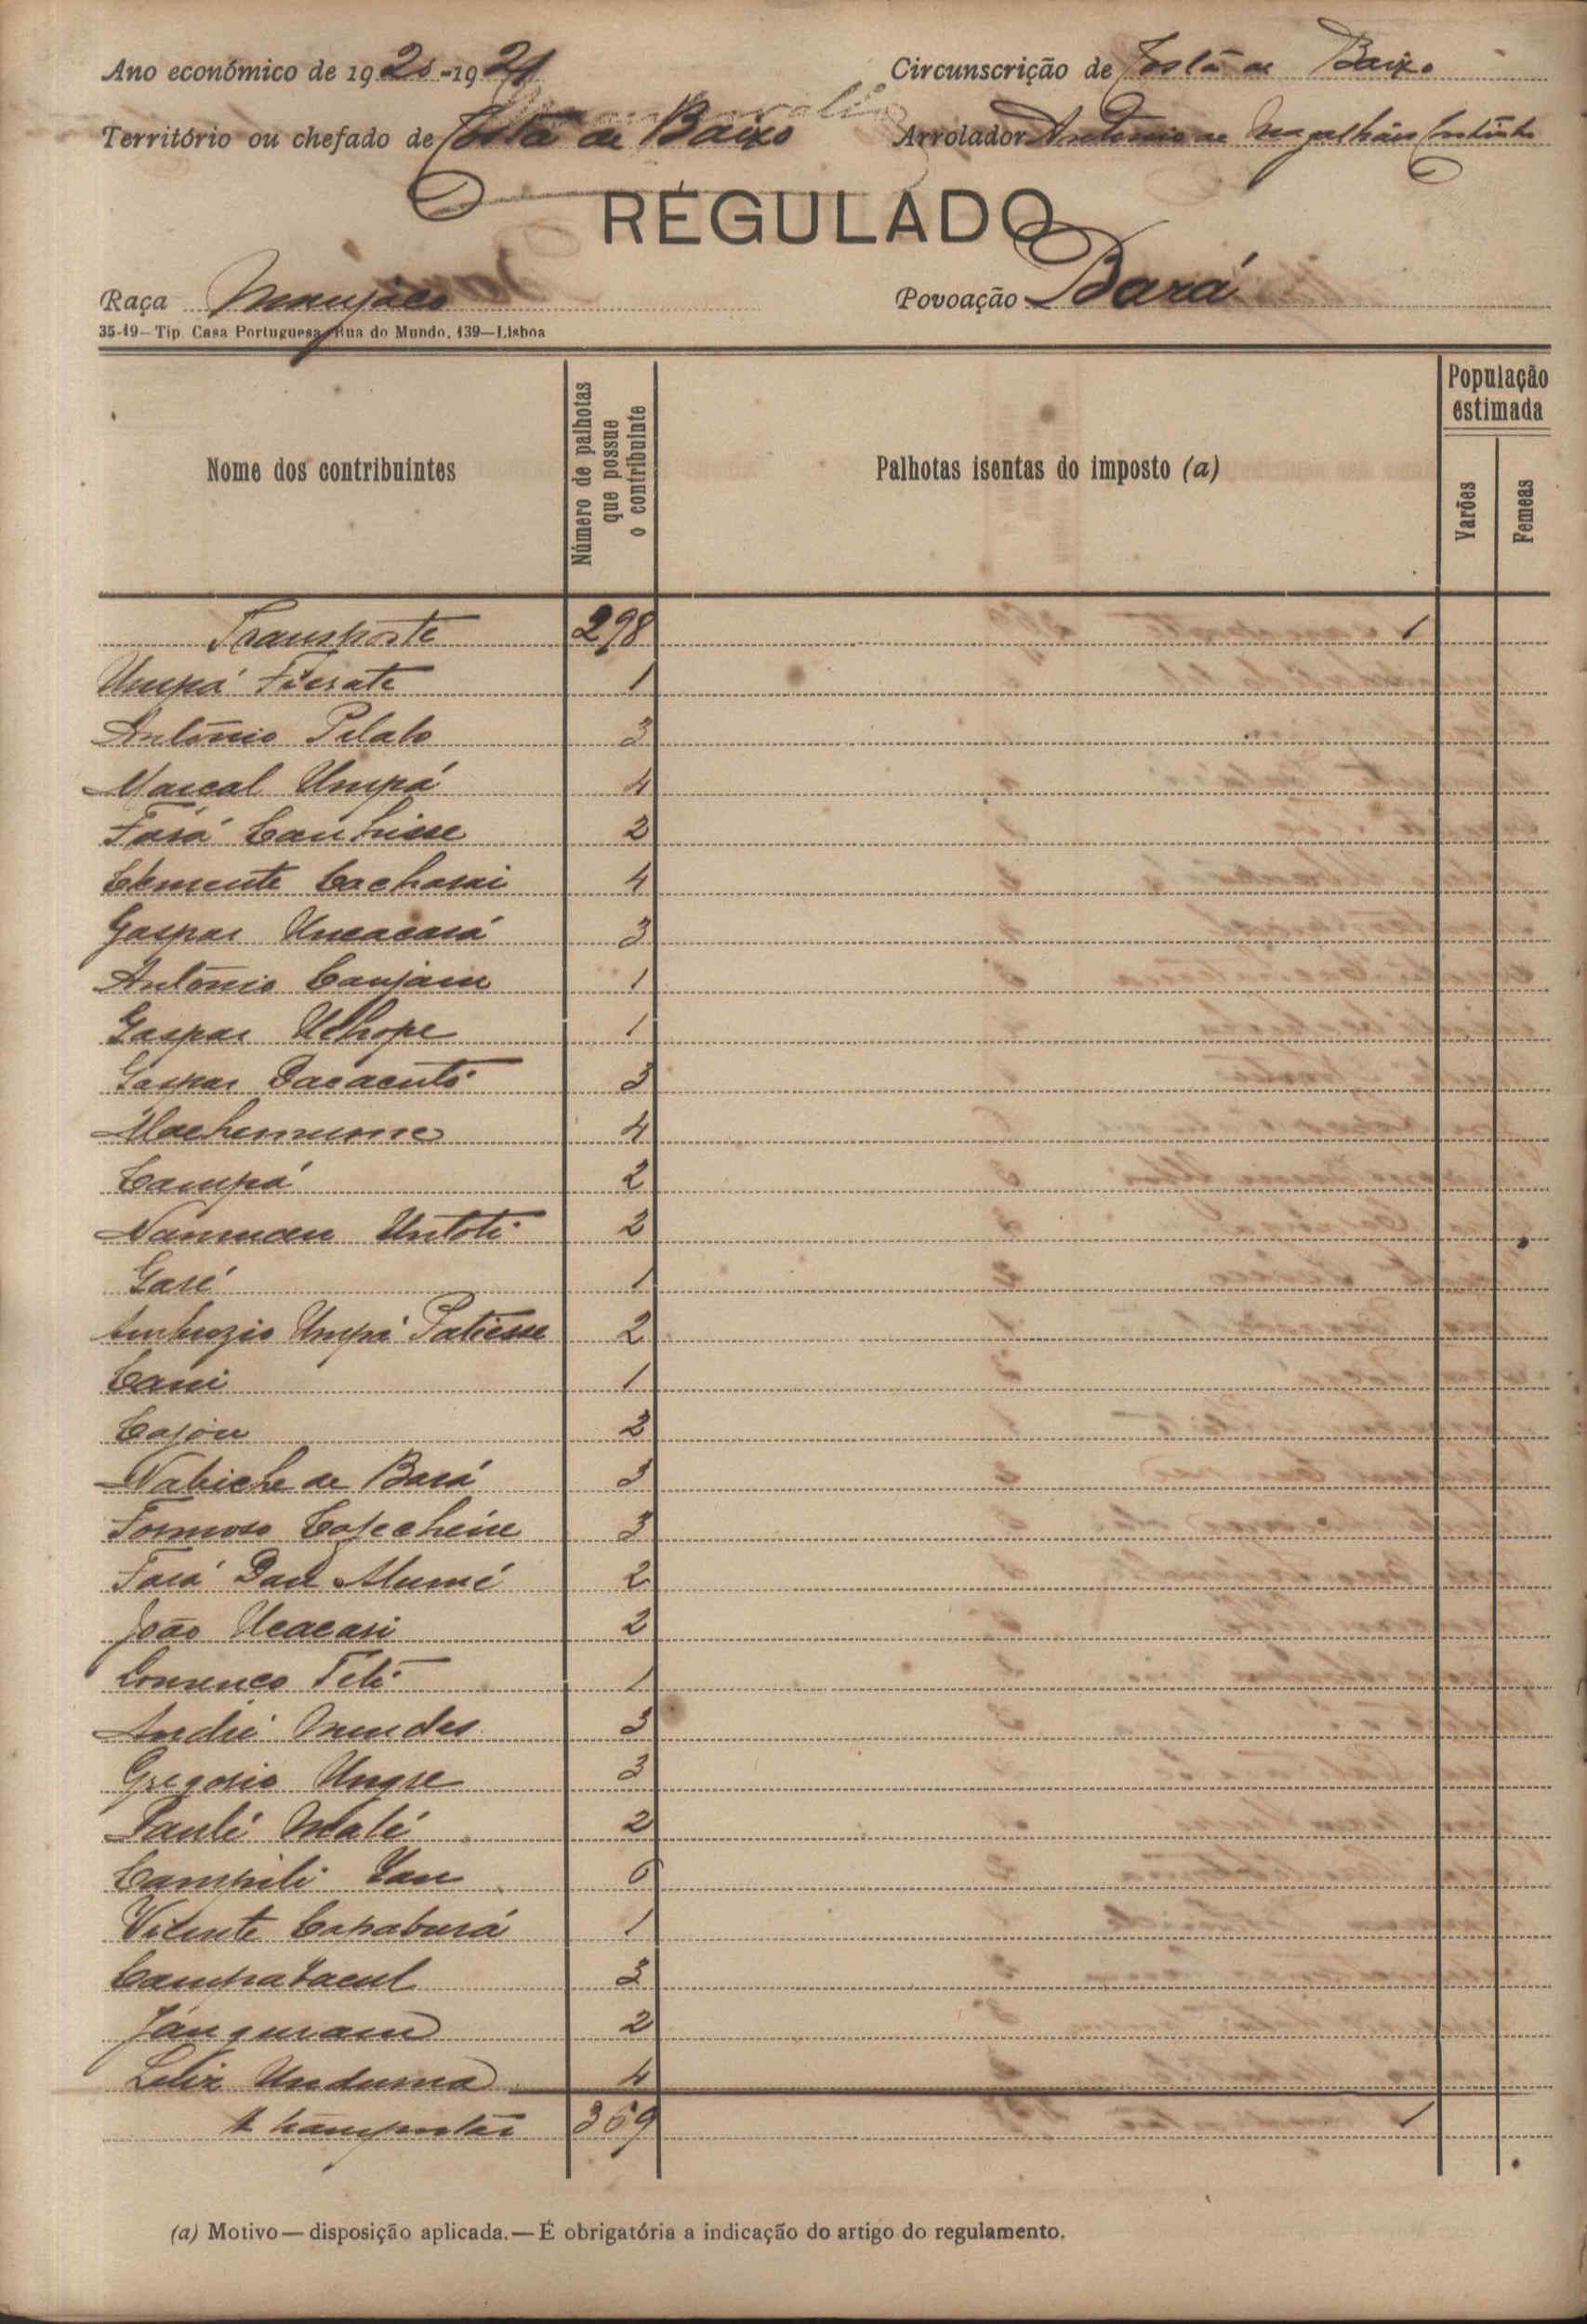 Ano económico de 1920-1921
Circunscrição de Costa de Baixo
Território ou chefado de Costa de Baixo
Arrolador António de Magalhães Coutinho
REGULADO
Raça Manjaco
Povoação Bará
35-19—Tip. Casa Portuguesa, Rua do Mundo, 139—Lisboa
Nome dos contribuintes
Número de palhotas que possue o contribuinte
Palhotas isentas do imposto (a)
População estimada
Varões
Femeas
Transporte 298 1
Umpá 1
António Pilato 3
Marcal Umpá 4
Fará 2
Clemente 4
Gaspar 3
António Canjam 1
Gaspar Uchope 1
Gaspar 3
4
Campá 2
Untoti 2
Garé 1
Ambrozio Umpá 2
Cani 1
2
Nabiche de Bará 3
Formoso 3
2
João Ucacari 2
Lourenço Teti 1
André Mendes 3
Gregorio Ungre 3
Paulé Malé 2
Campili
Vicente Capaburá 1
3
2
4
A transportar 369 1
(a) Motivo—disposição aplicada.—É obrigatória a indicação do artigo do regulamento.